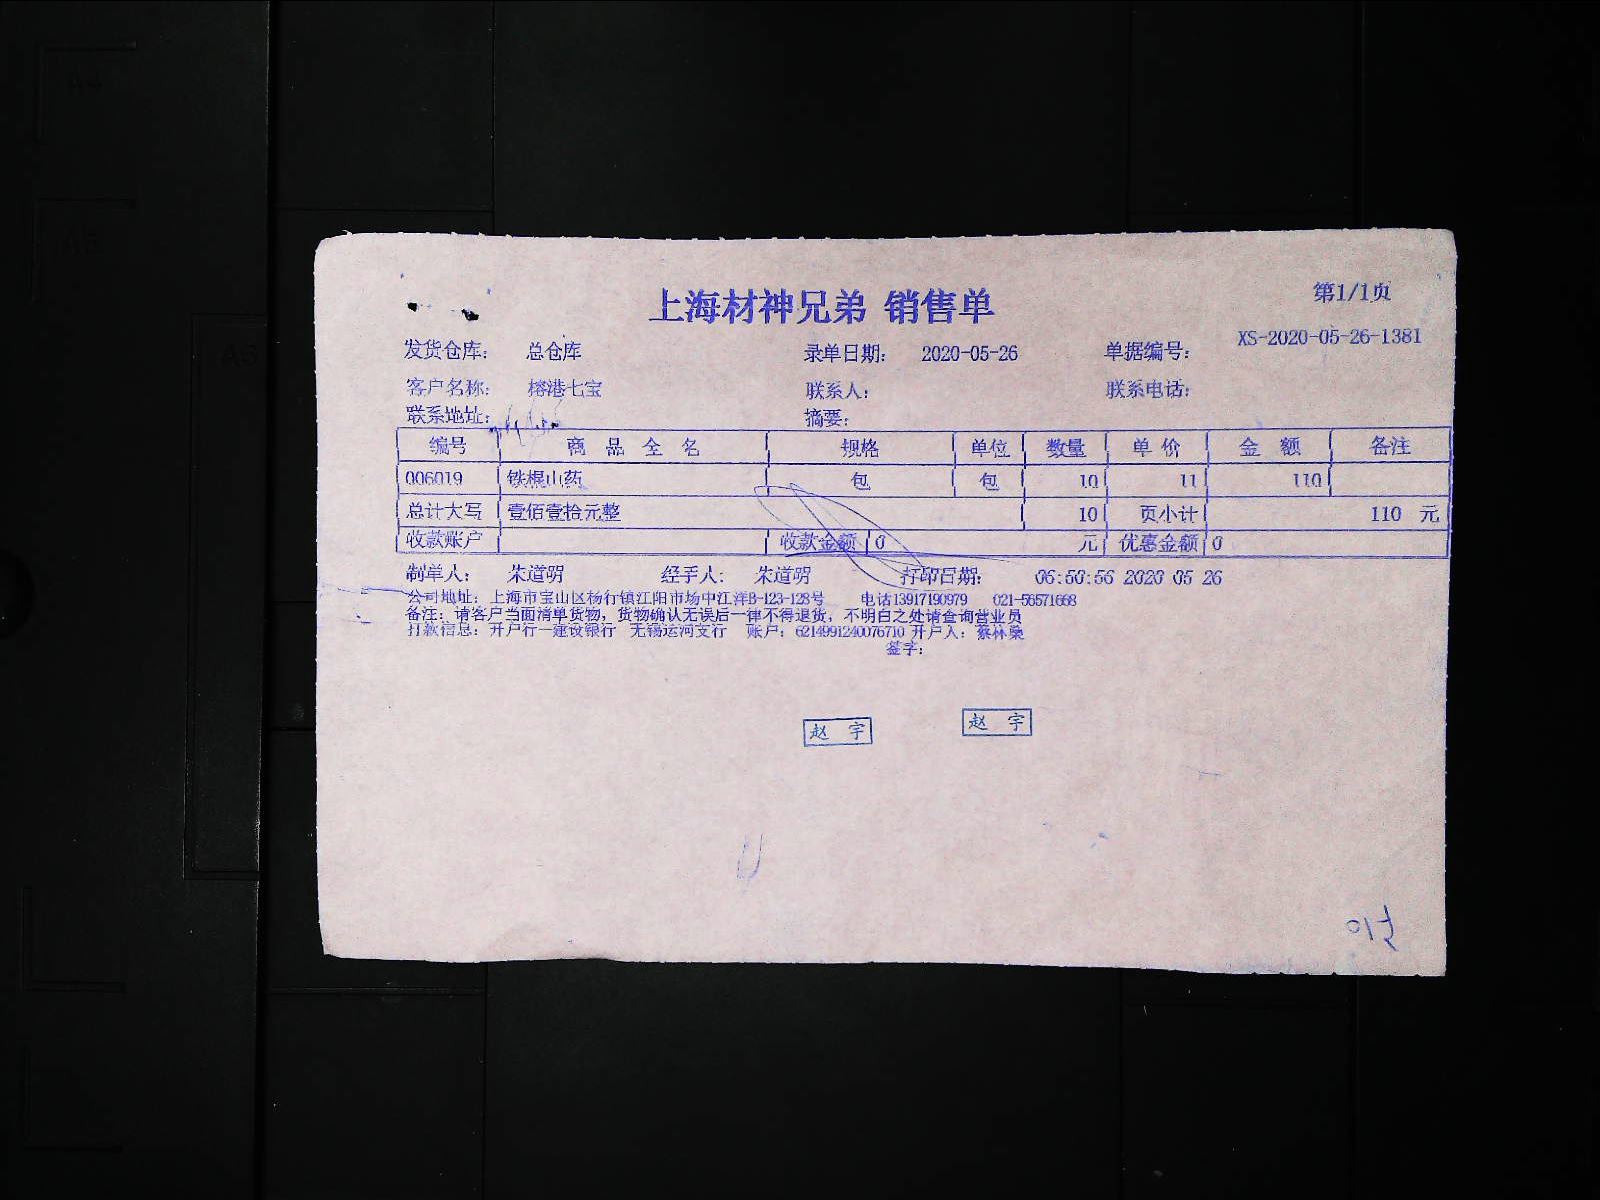 上海材神兄弟 销售单
第1/1页
XS-2020-05-26-1381
发货仓库: 总仓库 录单日期: 2020-05-26 单据编号:
客户名称: 榕港七宝 联系人: 联系电话:
联系地址: 摘要:
编号 商品全名 规格 单位 数量 单价 金额 备注
006019 铁棍山药 包 包 10 11 110
总计大写 壹佰壹拾元整 10 页小计 110 元
收款账户 收款金额 0 元 优惠金额 0
制单人: 朱道明 经手人: 朱道明 打印日期: 06:50:56 2020 05 26
公司地址: 上海市宝山区杨行镇江阳市场中江洋B-123-128号 电话13917190979 021-56571668
备注: 请客户当面清单货物, 货物确认无误后一律不得退货, 不明白之处请查询营业员
打款信息: 开户行—建设银行 无锡运河支行 账户: 6214991240076710 开户人: 蔡林燊
签字:
赵 宇
赵 宇